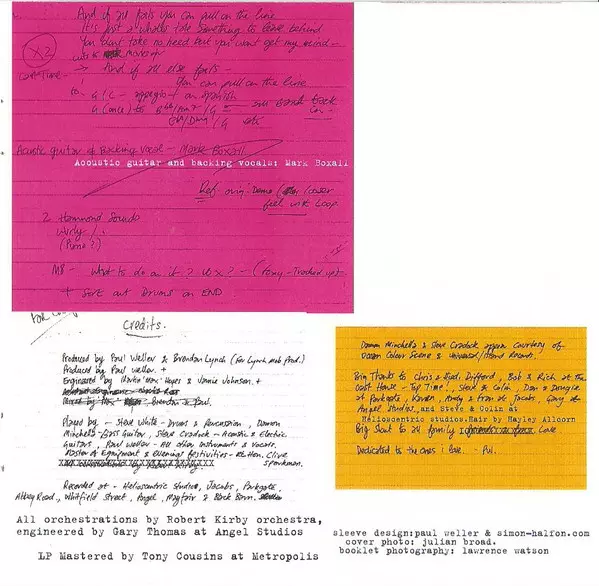 And if all fails you can pull on the line
It's just a
take something to leave behind
You don't take no heed but you won't get my mind -
X2
And if all else fails -
you can pull on the line
to G/C - appegio's on spanish
Acoustic guitar & Backing vocal - Mark Boxall
Acoustic guitar and backing vocals: Mark Boxall
Ref orig: Demo ( looser
feel with Loop
2 Hammond Sounds
Wurly /
(Piano?)
M8 - What to do on it? (Pony - Tracked up?)
+ Sort out Drums on END
Credits.
Produced by Paul Weller & Brendan Lynch (for Lynch Mob Prod.)
Produced by Paul Weller. +
Engineered by Martin 'Max' Hayes & Vonnie Johnson. +
Played by - Steve White - Drums & Percussion, Damon
Minchella - Bass Guitar, Steve Cradock - Acoustic & Electric
Guitars, Paul Weller - All other Instruments & Vocals.
Master of Equipment & Evening festivities - Kenton. Clive
Sparkman.
Recorded at - Heliocentric Studios, Jacobs, Parkgate,
Abbey Road, Whitfield Street, Angel, Mayfair & Black Barn.
All orchestrations by Robert Kirby orchestra,
engineered by Gary Thomas at Angel Studios
LP Mastered by Tony Cousins at Metropolis
Damon Minchella & Steve Cradock appear courtesy of
Ocean Colour Scene & Universal/Island Records.
Big Thanks to Chris & Syd. Difford, Bob & Rich at the
Cast House - Top Time!, Steve & Colin, Dan & Dougie
at Parkgate, Karen, Andy & Fran at Jacobs, Gary at
Angel Studios, and Steve & Colin at
Helioscentric studios.Hair by Hayley Allcorn
Big Shout to all family & Love
Dedicated to the ones I love. - Pw.
sleeve design:paul weller & simon-halfon.com
cover photo: julian broad.
booklet photography: lawrence watson